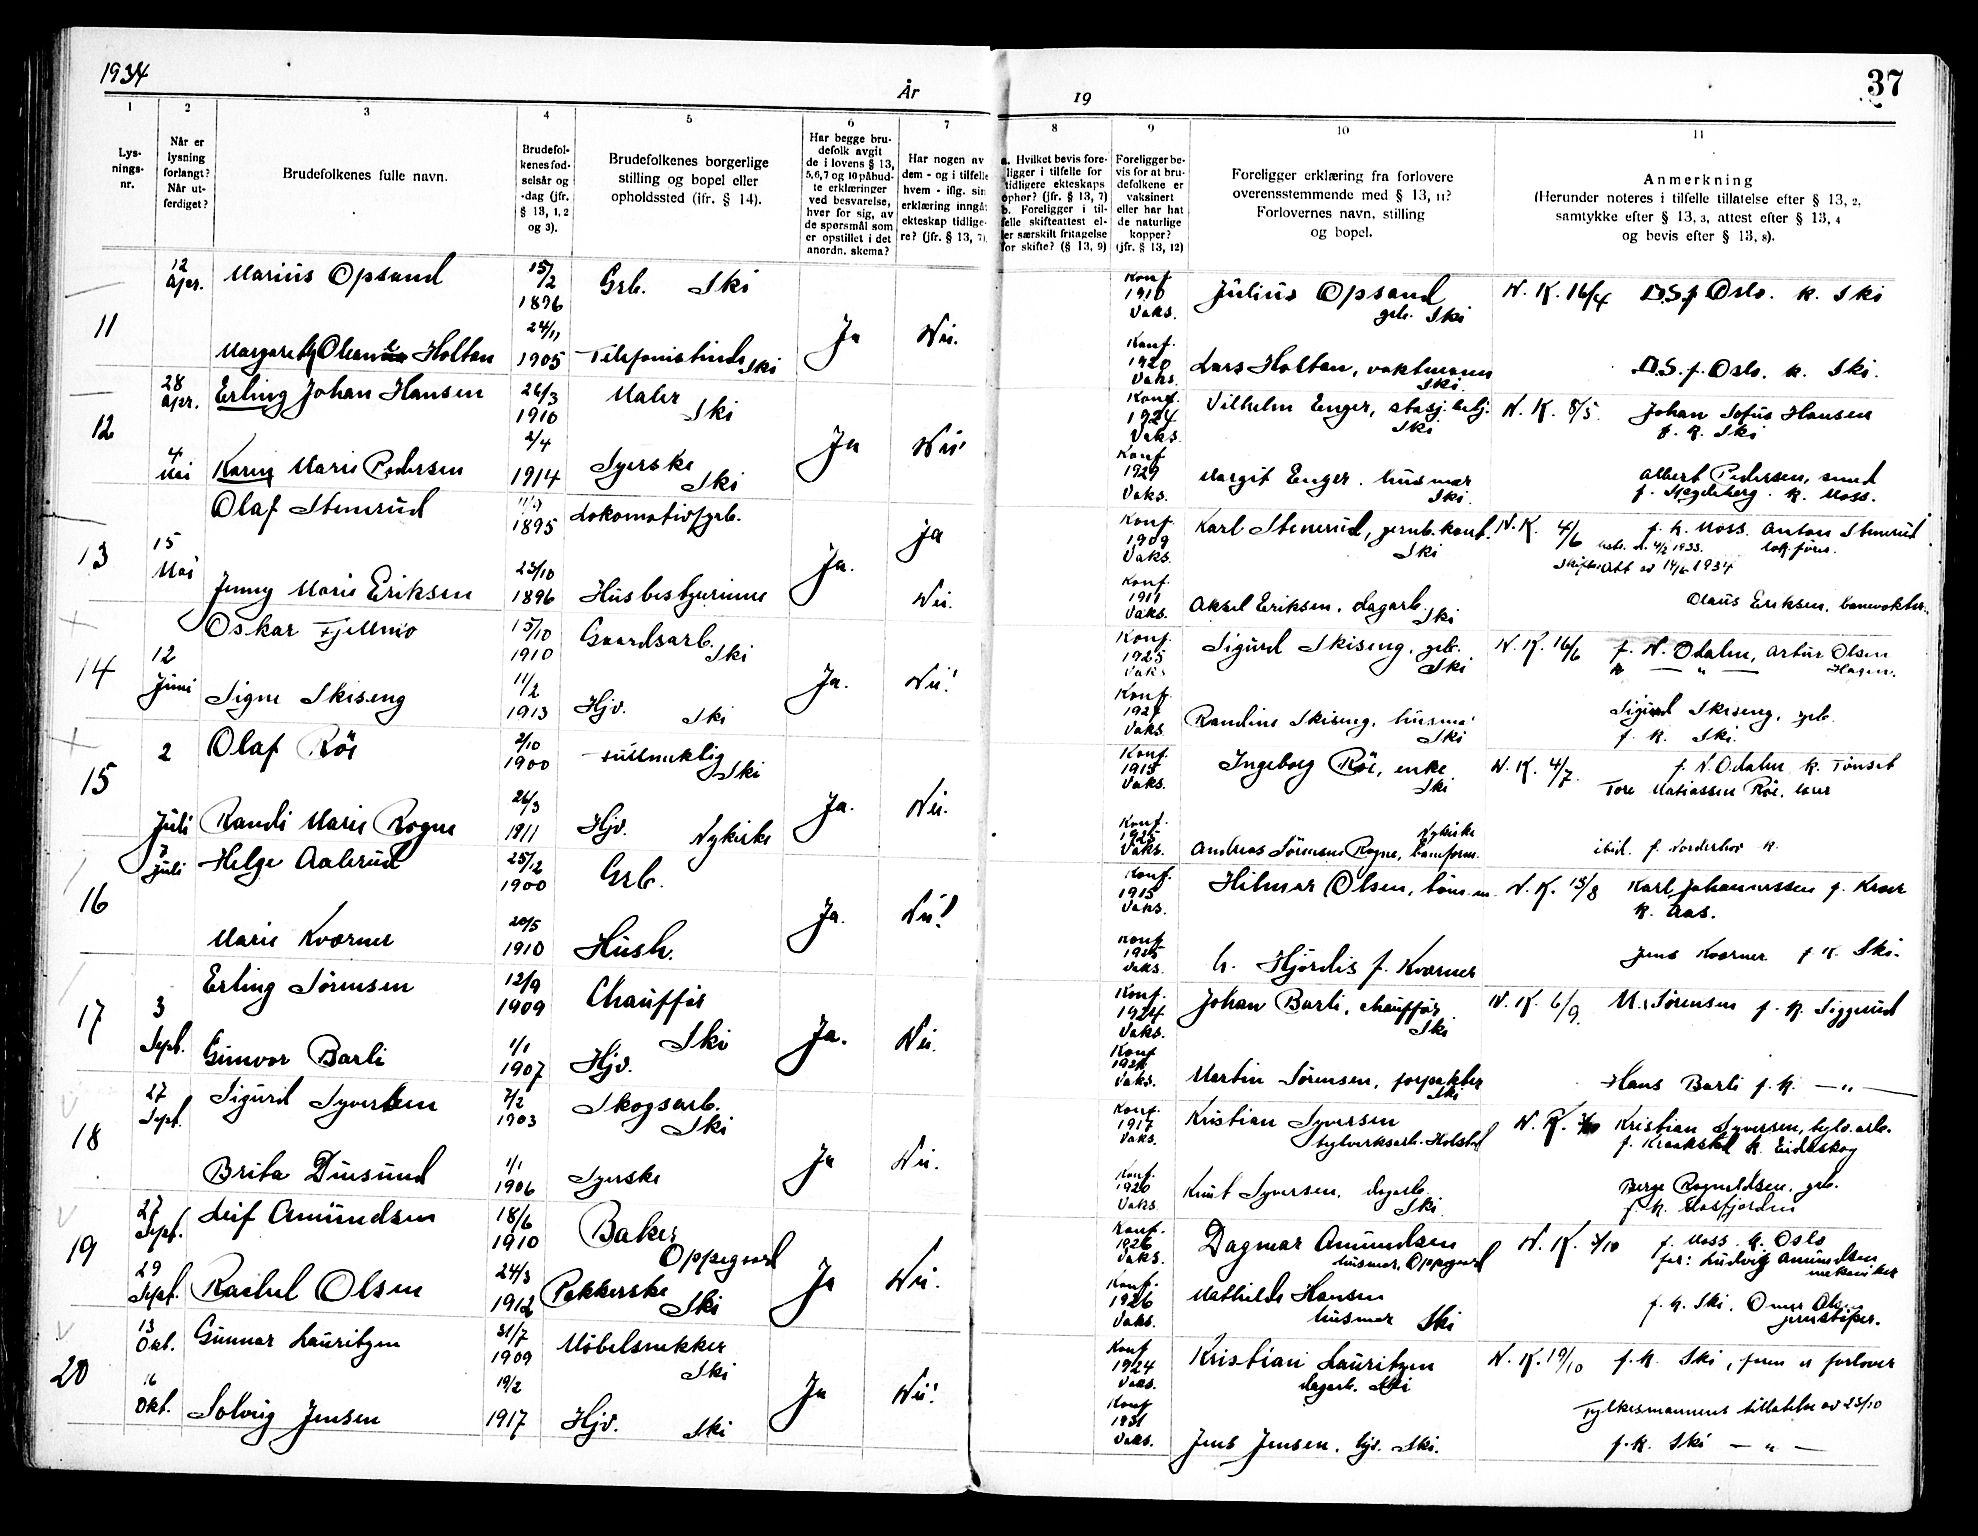 1934
År
19
37
1 2 3 4 5 6 7 8 9 10 11
Lys-
nings-
nr.
Når er
lysning
forlangt?
Når ut-
ferdiget?
Brudefolkenes fulle navn.
Brudefol-
kenes fød-
selsår og
-dag (jfr.
§ 13, 1, 2
og 3).
Brudefolkenes borgerlige
stilling og bopel eller
opholdssted (jfr. § 14).
Har begge bru-
defolk avgit
de i lovens § 13,
5,6,7 og 10 påbud-
te erklæringer
ved besvarelse,
hver for sig, av
de spørsmål som
er opstillet i det
anordn. skema?
Har nogen av
dem - og i tilfelle
hvem - iflg. sin
erklæring inngåt
ekteskap tidlige-
re? (jfr. § 13, 7).
a. Hvilket bevis fore-
ligger i tilfelle for
tidligere ekteskaps
ophør? (jfr. § 13, 7)
b. Foreligger i til-
felle skifteattest el-
ler særskilt fritagelse
for skifte? (§ 13, 9)
Foreligger be-
vis for at bru-
defolkene er
vaksinert
eller har hat
de naturlige
kopper?
(jfr. § 13, 12)
Foreligger erklæring fra forlovere
overensstemmende med § 13, 11?
Forlovernes navn, stilling
og bopel.
Anmerkning
(Herunder noteres i tilfelle tillatelse efter § 13, 2,
samtykke efter § 13, 3, attest efter § 13, 4
og bevis efter § 13, 8).
11
12 Apr.
Marius Opsand
15/2 1896
Grb. Ski
Ja
Nei.
Konf. 1910 Vaks.
Julius Opsand
grb. Ski
N. K. 16/4 D.S. f. Oslo. k. Ski
Holtan
24/11 1905
Telefonistinde Ski
Konf. 1920 Vaks.
Lars Holtan, vaktmann
Ski.
D.S. f. Oslo. k. Ski.
12
28 Apr.
Erling Johan Hansen
26/3 1910
Maler
Ski
Ja
Nei!
Konf. 1924 Vaks.
Vilhelm Enger, stasj.betj.
Ski
N. K. 8/5. Johan Sofus Hansen
f. k. Ski
4 Mai
Karin Marie Pedersen
2/4 1914
Syerske
Ski
Konf 1929 Vaks.
Margit Enger. husmor
Ski.
Albert Pedersen, smed
k. Moss.
13
15 Mai
Olaf Stenerud
1895
Lokomotivfyrb.
Ja.
ja
Konf. 1909 Vaks.
Karl Stenerud, jernb.kont.
Ski
N. K. 4/6 f. k. Moss. Anton Stenerud
lok.føre.
14/6 1934
Jenny Marie Eriksen
23/10 1896
Husbestyrerinne
Nei.
Konf. 1911 Vaks.
Aksel Eriksen, dagarb.
Ski
Olaus Eriksen, banevokter.
14
12 Juni
Oskar Fjellmo
15/10 1910
Gaardsarb.
Ski
Ja.
Nei!
Konf. 1925 Vaks
Sigurd Skiseng, grb.
Ski
N. K. 16/6 f. N. Odalen, Artur Olsen
k — " — Hagen.
Signe Skiseng
11/2 1913
Hjv. Ski
Konf. 1927 Vaks
Randine Skiseng, husmor
Ski
Sigurd Skiseng, grb.
f. k. Ski.
15
2 Juli
Olaf Röe
2/10 1900
fullmektig
Ski
Ja.
Nei.
Konf. 1915 Vaks.
Ingeborg Röe, enke
Ski
N. K. 4/7. f. N. Odalen k. Tönset
Tore Matiassen Röe,
Randi Marie Rogne
26/3 1911
Hjv. Nykirke
Konf. 1925 Vaks.
Nykirke
Andreas Sørensen Rogne, baneform.
ibid. f. Norderhov k.
16
7 Juli
Helge Aaberud
25/12 1900
Grb.
Ja.
Nei!
Konf 1915 Vaks.
Hilmar Olsen,
N. K. 13/8 Karl Johannessen f. Kroer
k. Aas.
Marie Kværner
20/5 1910
Hush.
Konf 1925 Vaks.
h. Hjördis f. Kværner
Jens Kværner f. k. Ski.
17
3 Sept.
Erling Sørensen
12/9 1909
Chauffør
Ski
Ja.
Nei.
Konf. 1924 Vaks.
Johan Barli, chauffør
Ski
N. K. 6/9. M. Sørensen f. k. Siggerud
Gunvor Barli
1/1 1907
Hjv.
Konf Vaks.
Martin Sørensen, forpakter
Ski
Hans Barli f. k. — " —
18
27 Sept.
Sigurd Syversen
7/2 1903
Skogsarb.
Ski
Ja
Nei.
Konf. 1917 Vaks.
Kristian Syversen
teglverksarb. Holstad
N. K. Kristian Syversen, teglv.arb.
f. Kraakstad k. Eidskog
Brita Duesund
1/1 1906
Syerske
Konf. 1920 Vaks.
Knut Syversen, dagarb.
Ski
f. k. Masfjorden
19
27 Sept.
Leif Amundsen
18/6 1910
Baker
Oppegaard
Ja
Nei.
Konf. 1926 Vaks.
Dagmar Amundsen
husmor, Oppegaard
N. K. 3/10 f. Moss k. Oslo
far: Ludvig Amundsen
mekaniker
29 Sept.
Rachel Olsen
24/3 1912
Pakkerske
Ski
Konf. 1926 Vaks.
Mathilde Hansen
husmor Ski
f. k. Ski. Omar
jernstøper.
20
13 Okt.
Gunnar Lauritzen
31/7 1909
Møbelsnekker
Ski
Ja
Nei!
Konf 1924 Vaks.
Kristian Lauritzen
dagarb. Ski
N. K. 19/10 f. k. Ski, faren er forlover
16 Okt.
Solveig Jensen
19/2 1917
Hjv. Ski
Konf 1931 Vaks.
Jens Jensen. Ski.
Fylkesmannens tillatelse av 23/10
f. k. Ski — " —